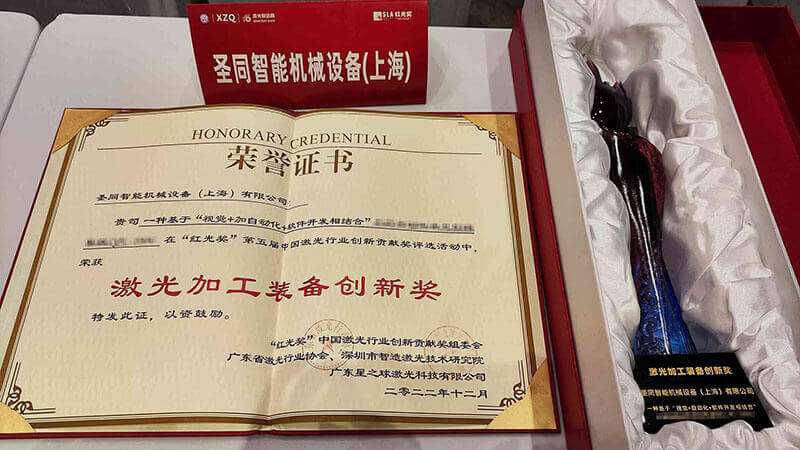 XZQ 激光制造网 SLA 红光奖
圣同智能机械设备(上海)
HONORARY CREDENTIAL
荣誉证书
圣同智能机械设备（上海）有限公司：
贵司 一种基于“视觉+加自动化+软件开发相结合”
在“红光奖”第五届中国激光行业创新贡献奖评选活动中，
荣获
激光加工装备创新奖
特发此证，以资鼓励。
“红光奖”中国激光行业创新贡献奖组委会
广东省激光行业协会、深圳市智造激光技术研究院
广东星之球激光科技有限公司
二〇二二年十二月
激光加工装备创新奖
圣同智能机械设备（上海）有限公司
一种基于“视觉+自动化+软件开发相结合”